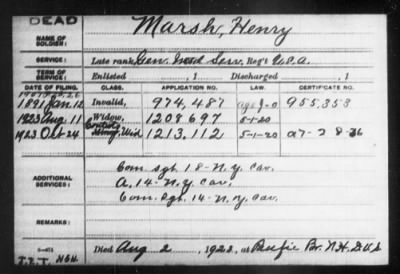 DEAD
NAME OF SOLDIER: Marsh, Henry
SERVICE: Late rank, Gen. Serv, Reg't U.S.A.
TERM OF SERVICE: Enlisted , 1 Discharged , 1
DATE OF FILING. CLASS. APPLICATION NO. LAW. CERTIFICATE NO.
1891 Jan. 12 Invalid, 974,487 955,353
1923 Aug 11 Widow, 1208697 5-1-20
1923 Oct 24 Wid 1,213,112 5-1-20
ADDITIONAL SERVICES: Com. Sgt. 18-N.Y. Cav.
A. 14-N.Y. Cav.
Com. Sgt. 14-N.Y. Cav.
REMARKS:
Died Aug 2, 1923, at Br. N.H.D.V.S.